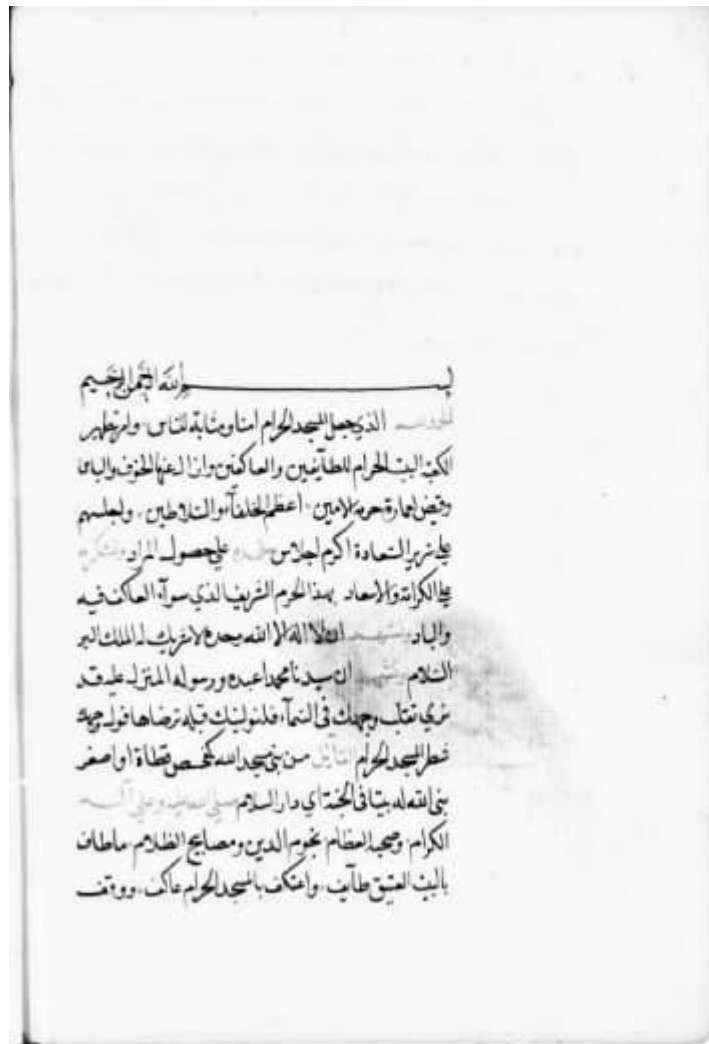 بسم الله الرحمن الرحيم
الحمد لله الذي جعل المسجد الحرام امنا ومثابة للناس وامر بتطهير
الكعبة البيت الحرام للطآيفين والعاكفين وازال عنها الخوف والباس
وقيض لعمارة حرمه الامين اعظم الخلفآء والسلاطين واجلسهم
على سرير السعادة اكرم اجلاس نحمده على حصول المراد ونشكره
على الكرامة والاسعاد بهذا الحرم الشريف الذي سوآء العاكف فيه
والباد ونشهد ان لا اله الا الله وحده لا شريك له الملك البر
السلام ونشهد ان سيدنا محمدا عبده ورسوله المنزل عليه قد
نرى تقلب وجهك في السمآء فلنولينك قبلة ترضاها فول وجهك
شطر المسجد الحرام القآئل من بنى مسجدا لله كمفحص قطاة او اصغر
بنى الله له بيتا في الجنة اي دار السلام صلى الله عليه وعلى آله
الكرام وصحبه العظام نجوم الدين ومصابيح الظلام ما طاف
بالبيت العتيق طآيف واعتكف بالمسجد الحرام عاكف ووقف